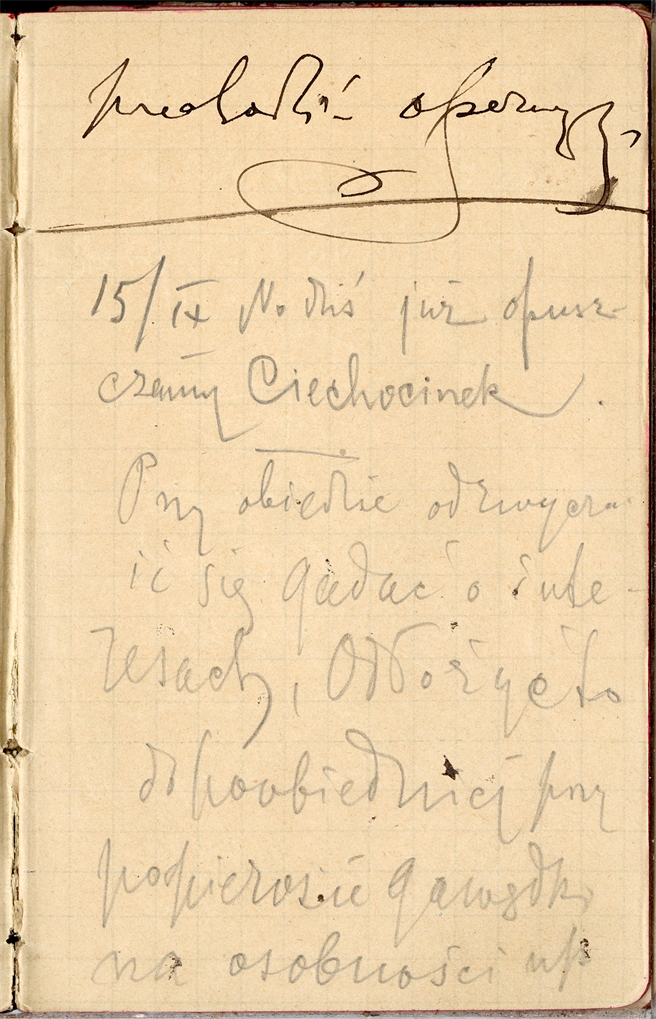 przechodzić operacyę.
15/IX No dziś już opusz-
czamy Ciechocinek.
Przy obiedzie odzwycza-
ić się gadać o inte-
resach, Odłożyć to
do poobiedniej przy
papierosie gawędki
na osobności